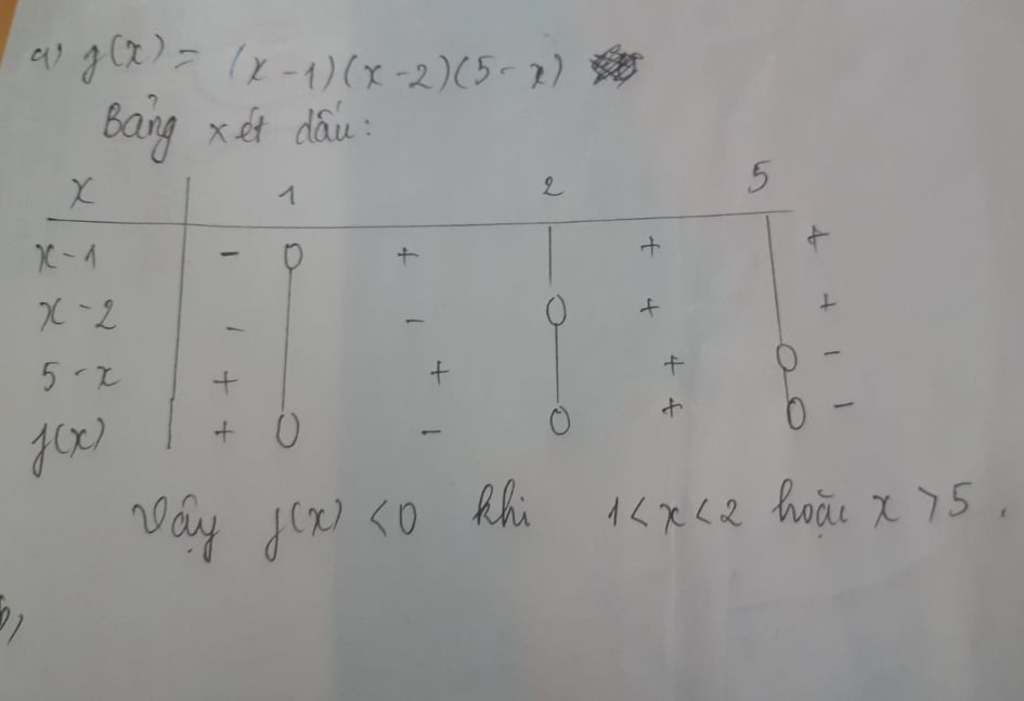 a) f(x) = (x-1)(x-2)(5-x)
Bảng xét dấu:
x 1 2 5
x-1 - 0 + | + +
x-2 - - 0 + +
5-x + + + 0 -
f(x) + 0 - 0 + 0 -
Vậy f(x) < 0 khi 1 < x < 2 hoặc x > 5.
b)